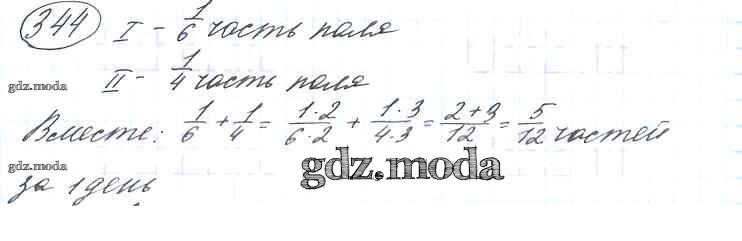 344 I - 1/6 часть поля
gdz.moda II - 1/4 часть поля
Вместе: 1/6 + 1/4 = 1·2/6·2 + 1·3/4·3 = 2+3/12 = 5/12 частей
gdz.moda gdz.moda
за 1 день